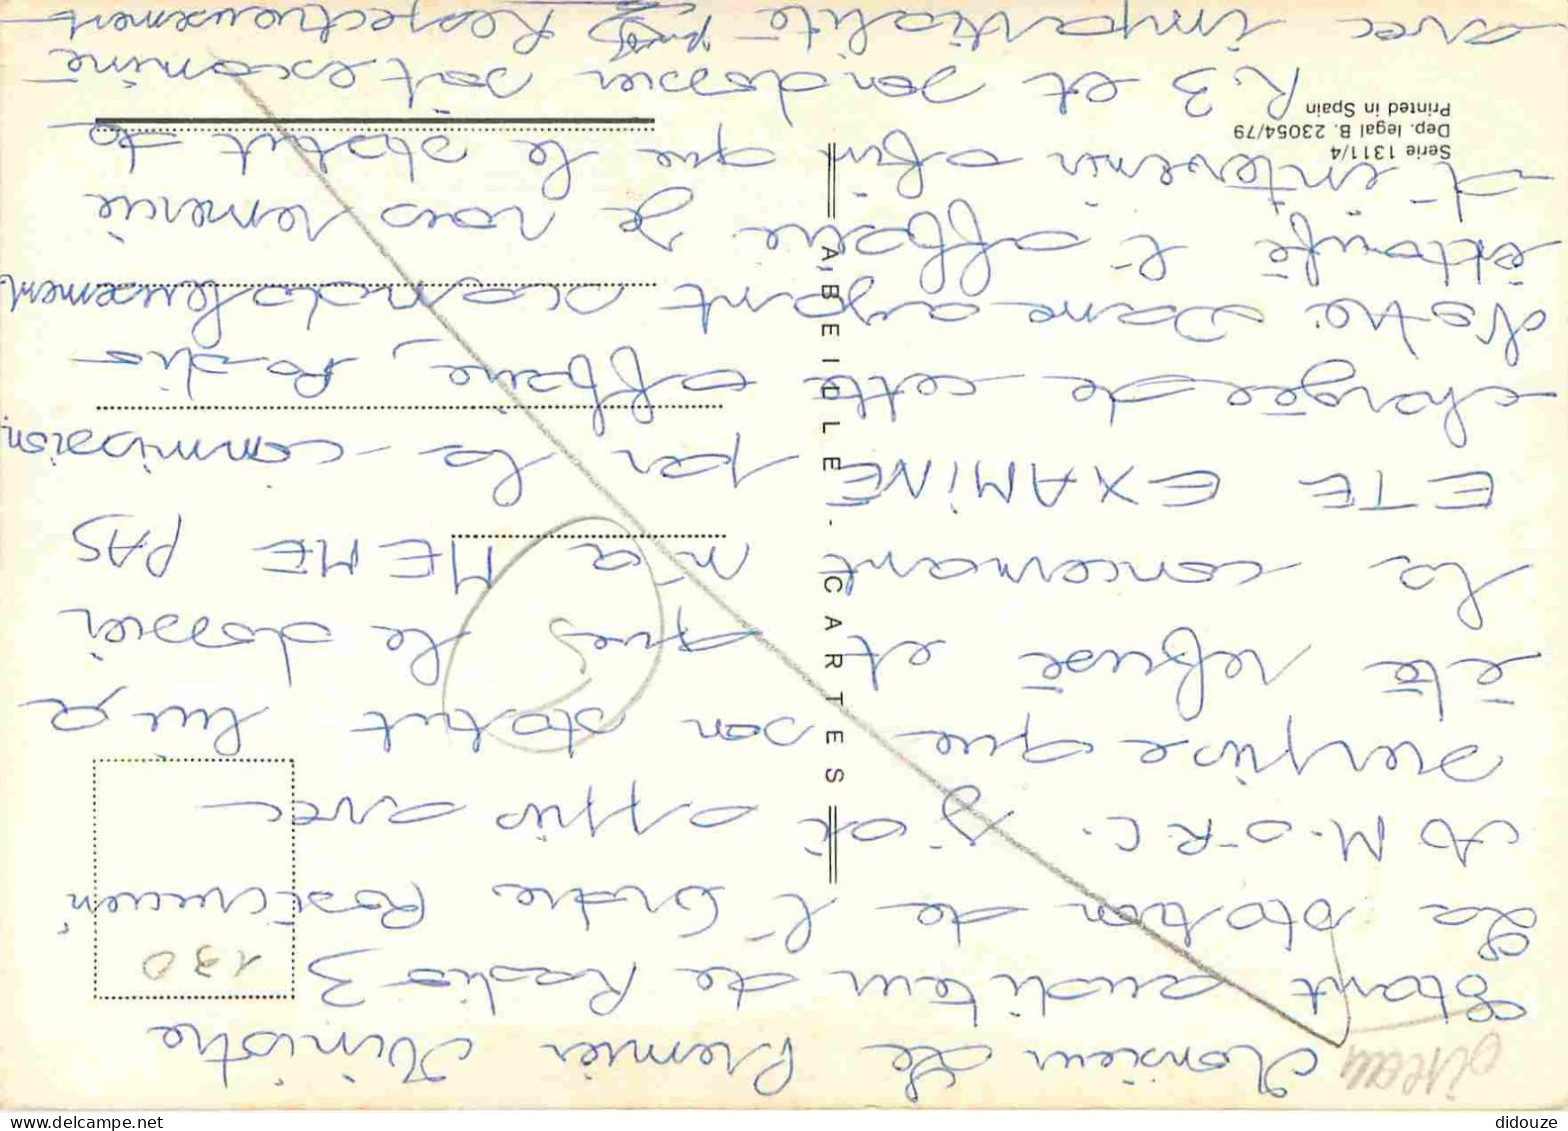 Monsieur Le Premier Ministre
Etant auditeur de Radio 3
La station de l'Ordre Rosicrucien
AMORC. j'ai appris avec
surprise que son statut lui a
été refusé et que le dossier
la concernant n'a MEME PAS
ETE EXAMINÉ par la commission
chargée de cette affaire, Radio
Notre Dame ayant scandaleusement
étouffé l'affaire Je vous remercie
d'intervenir afin que le statut de
R.3 et son dossier soit examiné
avec impartialité Respectueusement
oiseau
130
ABEILLE-CARTES
Serie 1311/4
Dep. legal B. 23054/79
Printed in Spain
didouze